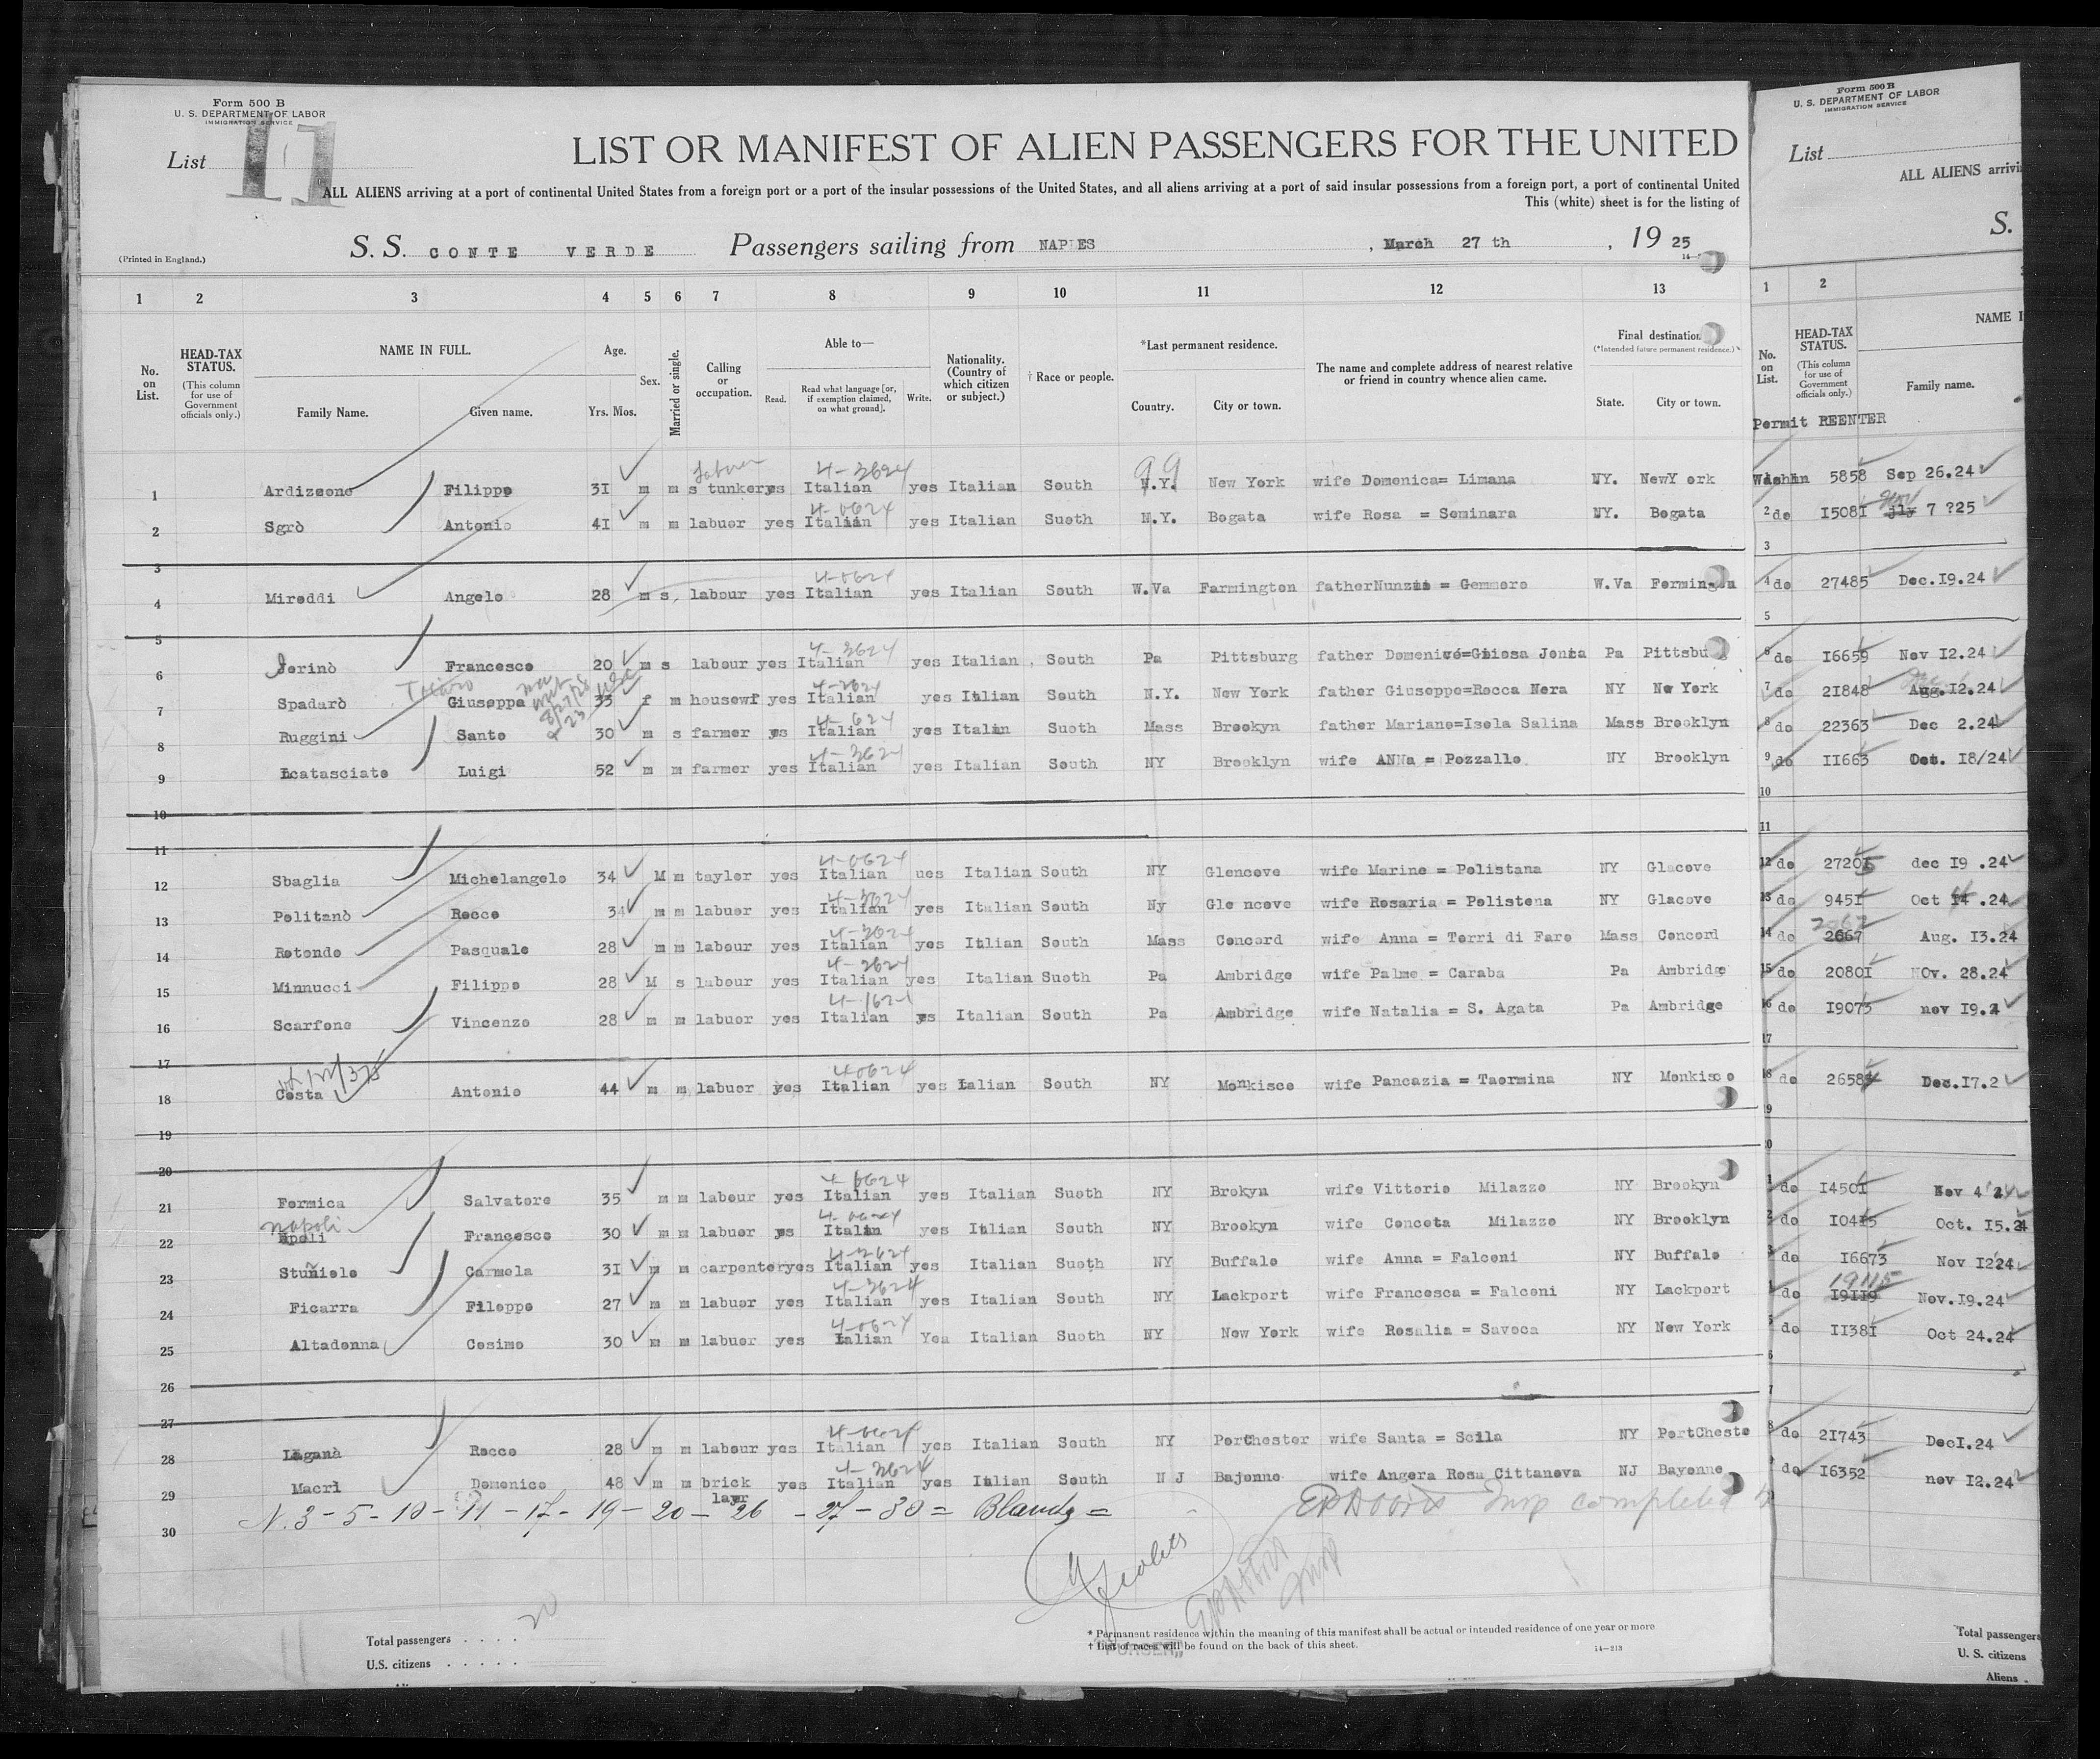 Form 500 B
U. S. DEPARTMENT OF LABOR
IMMIGRATION SERVICE
List 11
LIST OR MANIFEST OF ALIEN PASSENGERS FOR THE UNITED
ALL ALIENS arriving at a port of continental United States from a foreign port or a port of the insular possessions of the United States, and all aliens arriving at a port of said insular possessions from a foreign port, a port of continental United
This (white) sheet is for the listing of
(Printed in England.)
S. S. CONTE VERDE Passengers sailing from NAPLES , March 27 th , 19 25
1 2 3 4 5 6 7 8 9 10 11 12 13
No. on List.
HEAD-TAX STATUS.
(This column for use of Government officials only.)
NAME IN FULL.
Family Name. Given name.
Age.
Yrs. Mos.
Sex.
Married or single.
Calling or occupation.
Able to—
Read. Read what language [or, if exemption claimed, on what ground]. Write.
Nationality. (Country of which citizen or subject.)
† Race or people.
*Last permanent residence.
Country. City or town.
The name and complete address of nearest relative or friend in country whence alien came.
Final destination
(*Intended future permanent residence.)
State. City or town.
labour 4-3624 99
1 Ardizeone Filippo 3I m m s tunker yes Italian yes Italian South N.Y. New York wife Domenica= Limana NY. NewY ork
4-0624
2 Sgrò Antonio 4I m m labuor yes Italian yes Italian Suoth N.Y. Bogata wife Rosa = Seminara NY. Bogata
3
4-0624
4 Mireddi Angelo 28 m s, labour yes Italian yes Italian South W.Va Farmington father Nunzio = Gemmoro W.Va
5
4-3624
6 Jerinò Francesco 20 m s labour yes Italian yes Italian South Pa Pittsburg father Pa Pittsbu
7 Spadarò Giuseppa 33 f m housewf yes Italian yes Italian South N.Y. New York father Giuseppe=Rocca Nera NY New York
8 Ruggini Santo 30 m s farmer yes Italian yes Italian Suoth Mass Brookyn father Mariano=Isola Salina Mass Brooklyn
4-3624
9 Lcatasciato Luigi 52 m m farmer yes Italian yes Italian South NY Brooklyn wife ANNa = Pozzallo NY Brooklyn
10
11
4-0624
12 Sbaglia Michelangelo 34 M m taylor yes Italian ues Italian South NY Glencove wife Marine = Polistana NY Glacove
4-3624
13 Politanò Rocco 34 m m labuor yes Italian yes Italian South Ny Gle ncove wife Rosaria = Polistena NY Glacove
4-3624
14 Rotondo Pasquale 28 m m labour yes Italian yes Itlian South Mass Concord wife Anna = Torri di Faro Mass Concord
4-3624
15 Minnucci Filippo 28 M s labour yes Italian yes Italian Suoth Pa Ambridge wife Palme = Caraba Pa Ambridge
16 Scarfone Vincenzo 28 m m labuor yes Italian yes Italian South Pa Ambridge wife Natalia = S. Agata Pa Ambridge
17
4-0624
18 Costa Antonio 44 m m labuor yes Italian yes Italian South NY Monkisco wife Pancazia = Taormina NY Monkisco
19
20
4-0624
21 Formica Salvatore 35 m m labour yes Italian yes Italian Suoth NY Brokyn wife Vittorio Milazzo NY Brookyn
Napoli
22 Francesco 30 m m labuor yes Italian yes Italian South NY Brookyn wife Conceta Milazzo NY Brooklyn
4-2624
23 Stuniolo Carmela 3I m m carpenter yes Italian yes Italian Suoth NY Buffalo wife Anna = Falconi NY Buffalo
4-3624
24 Ficarra Filoppo 27 m m labuor yes Italian yes Italian South NY Lackport wife Francesca = Falconi NY Lackport
4-0624
25 Altadonna Cosimo 30 m m labuor yes Italian Yea Italian Suoth NY New York wife Rosalia = Savoca NY New York
26
27
4-0624
28 Laganà Rocco 28 m m labour yes Italian yes Italian South NY PortChester wife Santa = Scila NY PortCheste
4-3624
29 Macrì Domenico 48 m m brick layer yes Italian yes Italian South N J Bajonne wife Angera Rosa Cittanova NJ Bayonne
N. 3 - 5 - 10 - 11 - 17 - 19 - 20 - 26 - 27 - 30 = Blands = Insp completed
30
20
Total passengers . . . .
U.S. citizens . . . . .
PURSER
* Permanent residence within the meaning of this manifest shall be actual or intended residence of one year or more
† List of races will be found on the back of this sheet.
14-213
Form 500 B
U. S. DEPARTMENT OF LABOR
IMMIGRATION SERVICE
List
ALL ALIENS arrivi
S.
1 2
No. on List.
HEAD-TAX STATUS.
(This column for use of Government officials only.)
NAME I
Family name.
Permit REENTER
Washin 5858 Sep 26.24
2 do I508I 7 ?25
3
4 do 27485 Dec.I9.24
5
6 do I6659 Nov I2.24
7 do 2I848 Aug.I2.24
8 do 22363 Dec 2.24
9 do II663 Oct. I8/24
10
11
12 do 27205 dec I9 .24
13 do 945I Oct 14 .24
14 do 2667 Aug. I3.24
15 do 2080I NOv. 28.24
16 do I9075 nov I9.2
17
18 do 26584 Dec.I7.2
do I450I Nov 4 24
do I0415 Oct. I5.24
do I6673 Nov I224
19115
do I9II9 Nov.I9.24
do II38I Oct 24.24
do 2I743 DecI.24
do I6352 nov I2.24
Total passengers
U. S. citizens
Aliens .